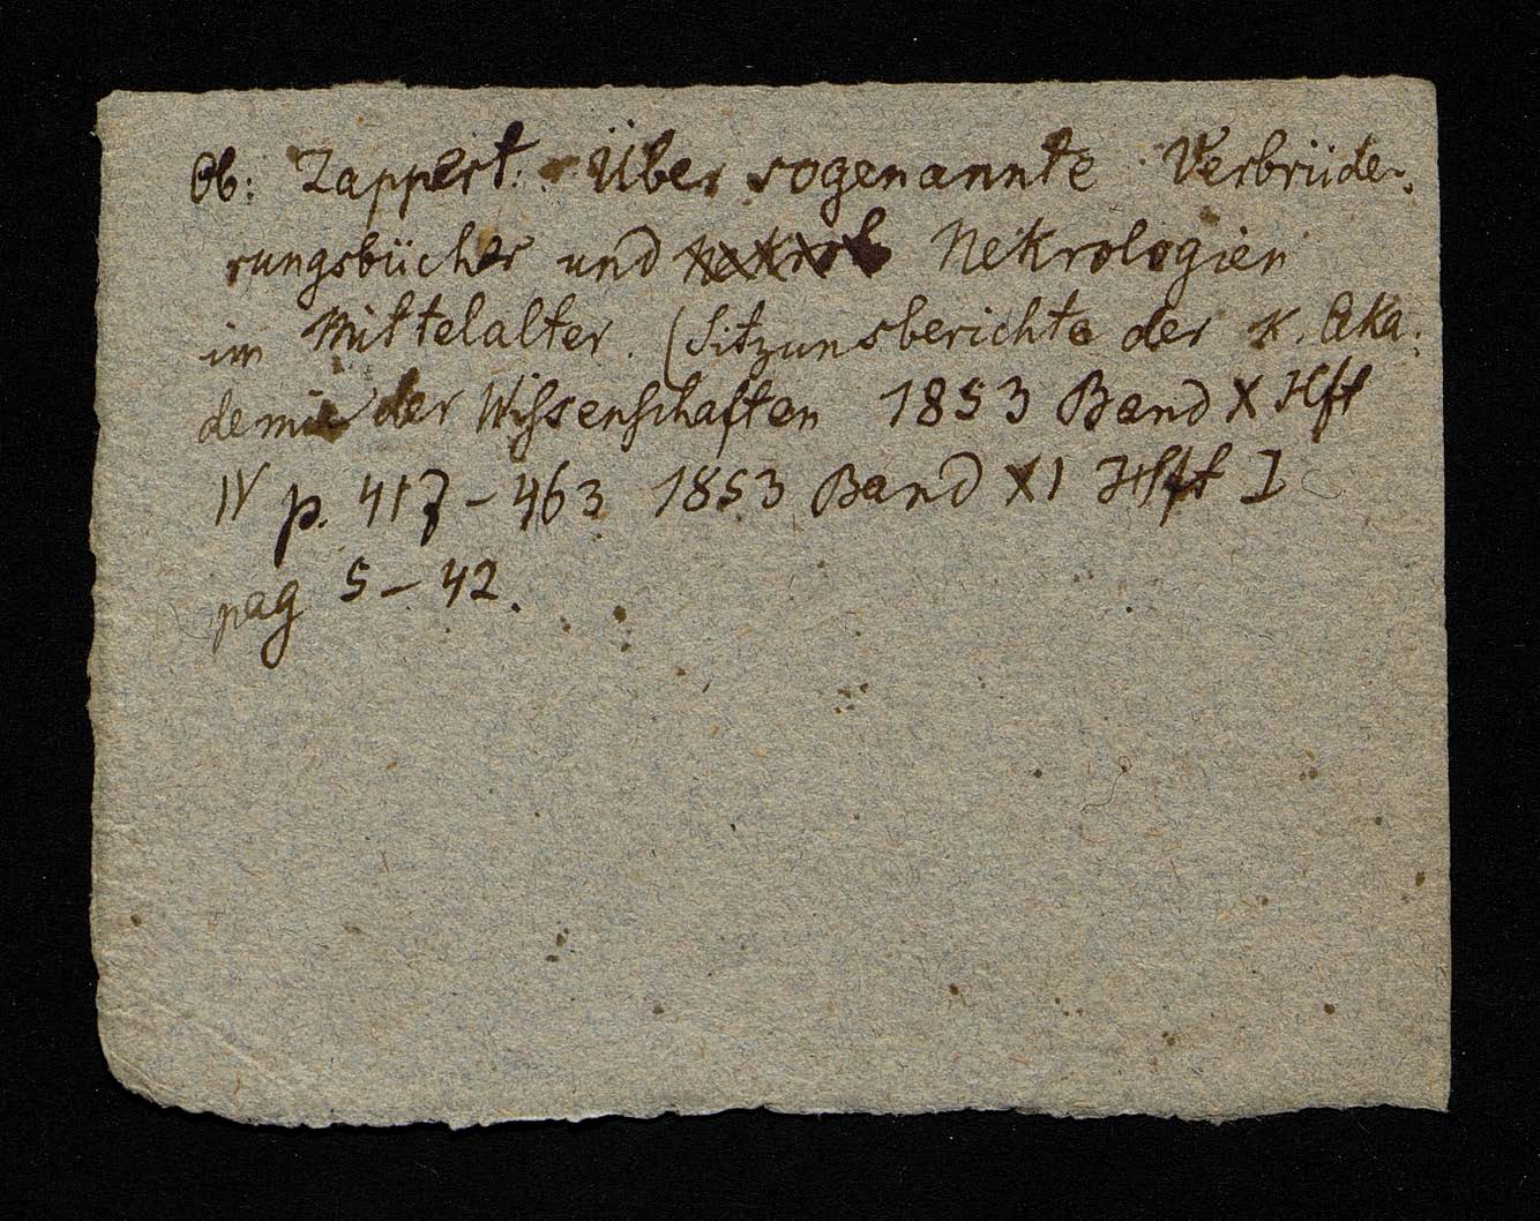 Ob: Zappert: Über sogenannte Verbrüde-
rungsbücher und Nekrologien
im Mittelalter. (Sitzunsberichte der K. Aka-
demie der Wissenschaften 1853 Band X Hft
IV p. 417-463 1853 Band XI Hft I
pag 5-42.